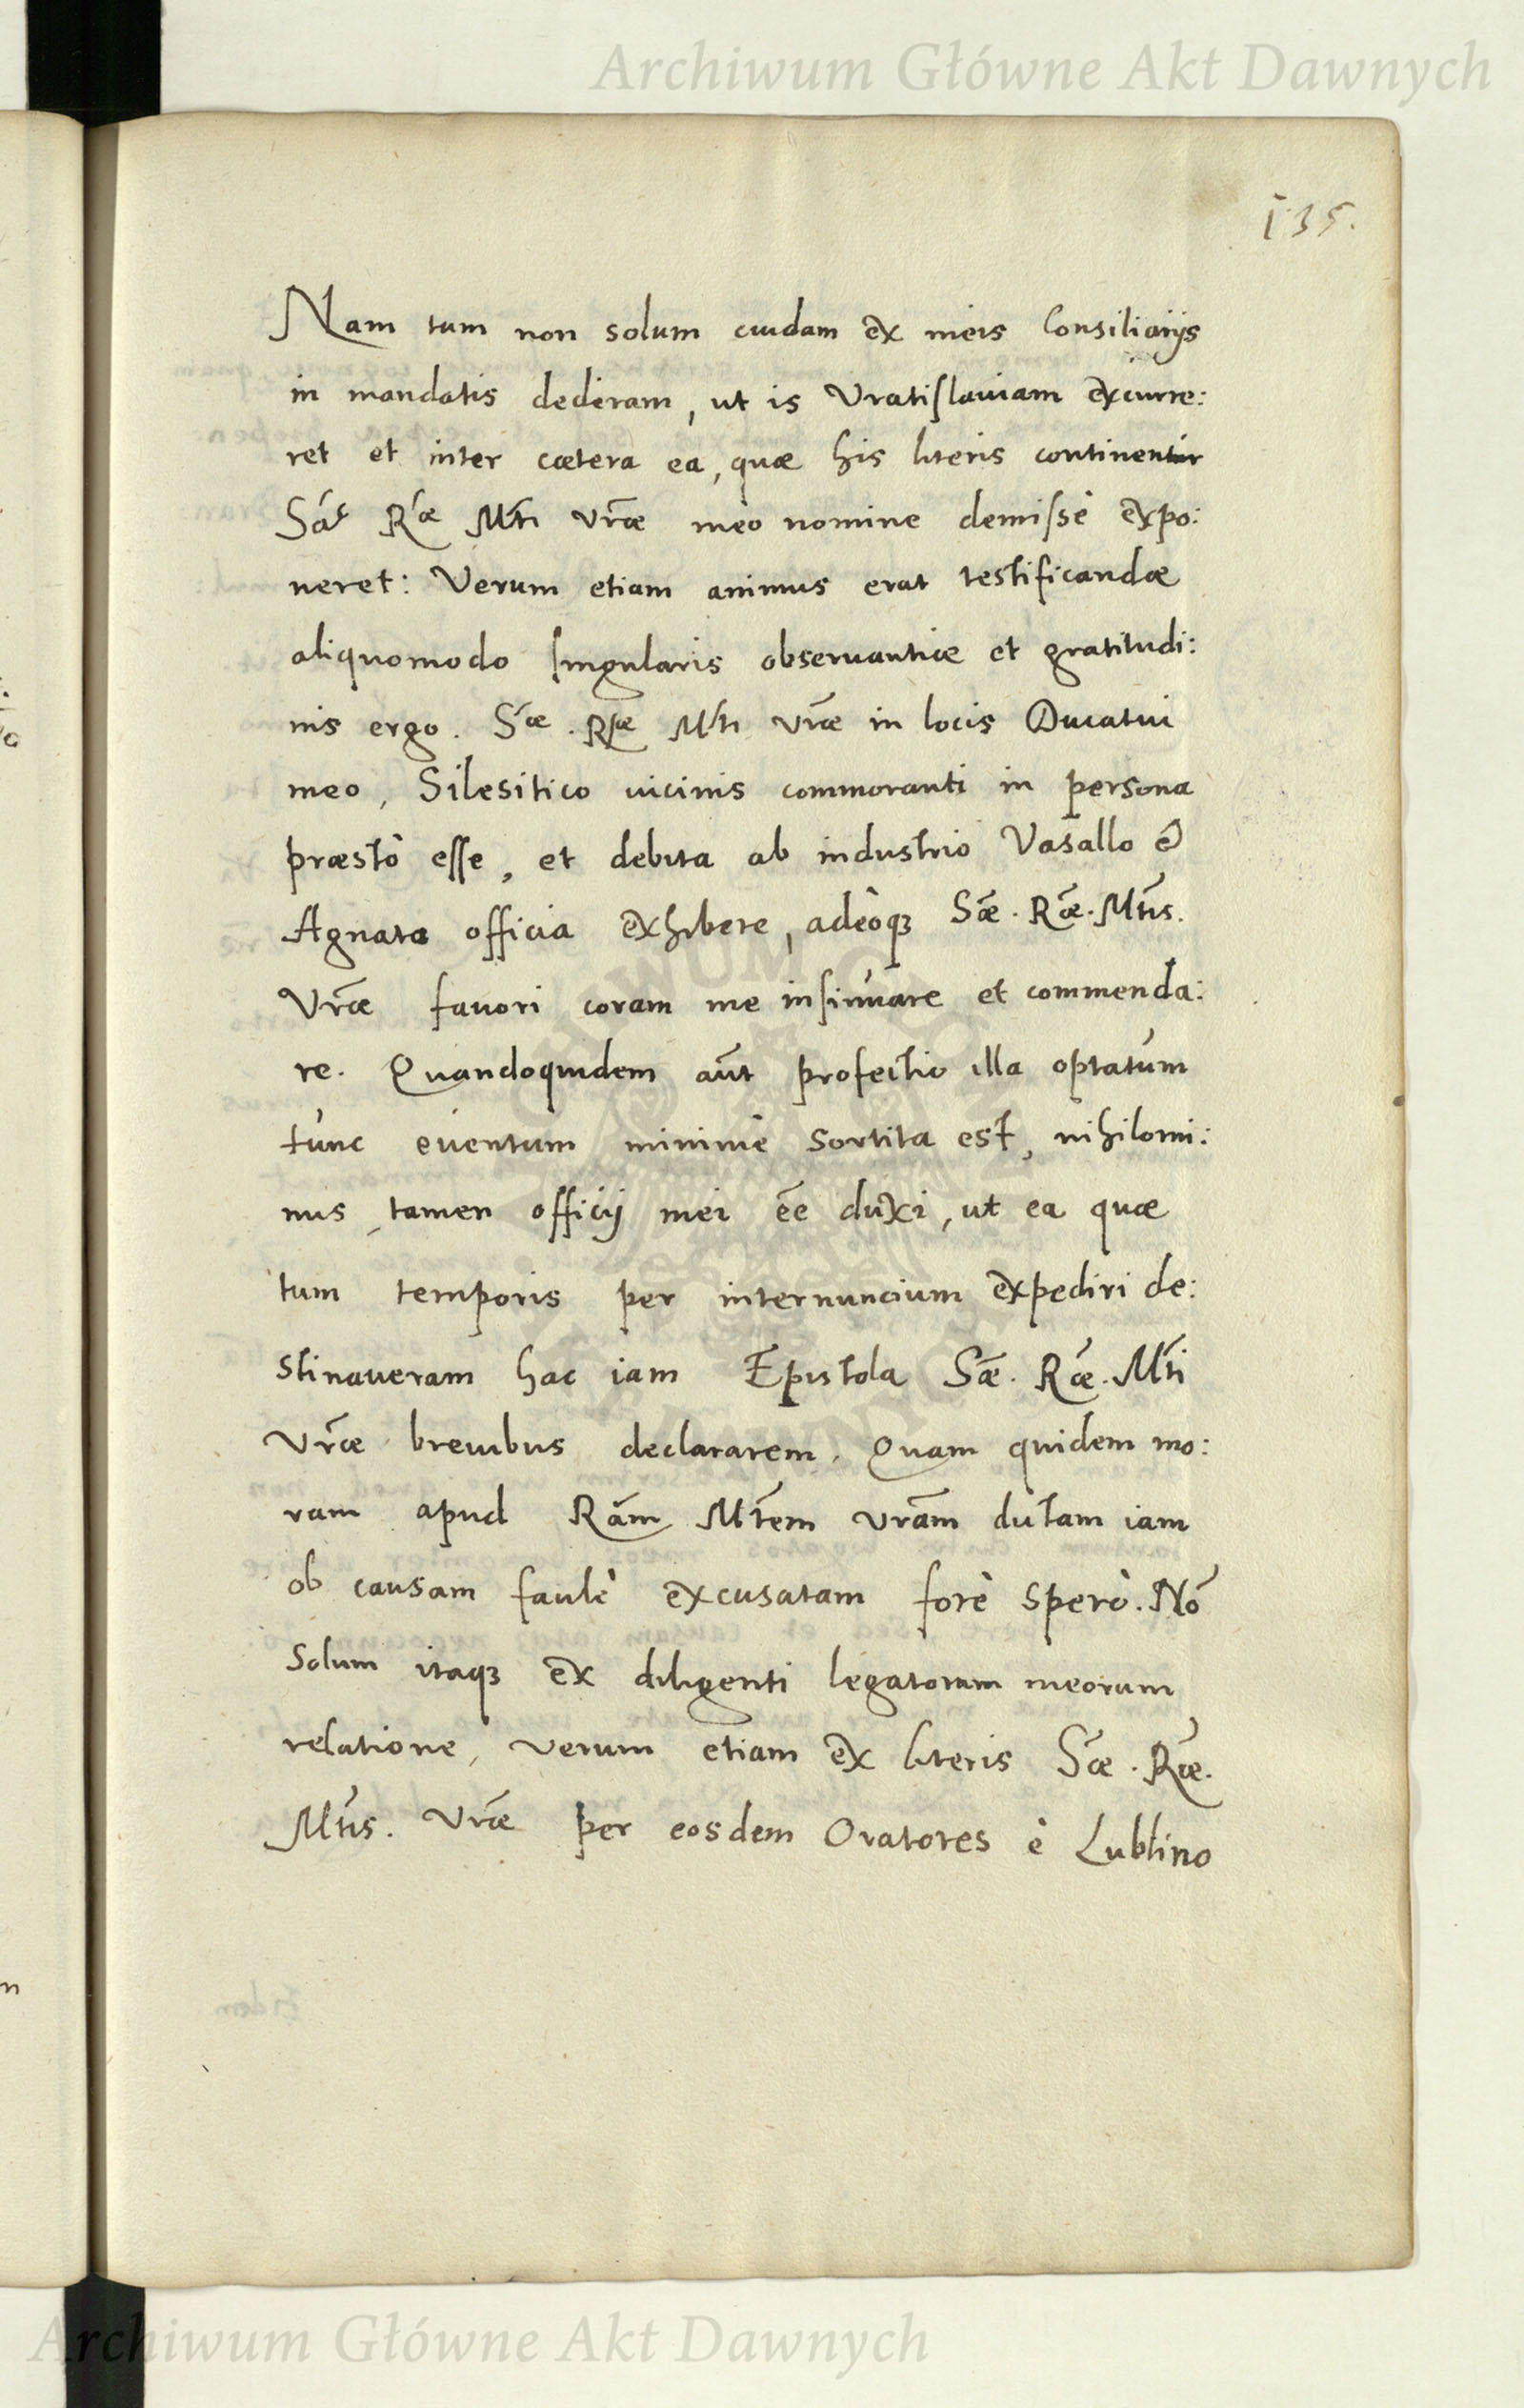 Archiwum Główne Akt Dawnych
135.
Nam tum non solum cuidam ex meis Consiliarijs
in mandatis dederam, ut is Vratislauiam excurre:
ret et inter cætera ea, quæ his literis continentur
Sac̃ R̃æ Mt̃i Vr̃æ meo nomine demissè expo:
neret: Verum etiam animus erat testificandæ
aliquomodo singularis obseruantiæ et gratitudi:
nis ergo. S̃æ. R̃æ Mt̃i Vr̃æ in locis Ducatui
meo, Silesitico uicinis commoranti in persona
præstò esse, et debita ab industrio Vasallo &
Agnato officia exhibere, adeoq₃ S̃æ. R̃æ. Mt̃is.
Vr̃æ fauori coram me insinuare et commenda:
re. Quandoquidem aũt profectio illa optatum
tunc euentum minimè sortita est, nihilomi:
nus tamen officij mei ẽe duxi, ut ea quæ
tum temporis per internuncium expediri de:
stinaueram hac iam Epistola S̃æ. R̃æ. Mt̃i
Vr̃æ breuibus declararem. Quam quidem mo:
ram apud Rãm Mt̃em Vrãm dictam iam
ob causam facilè excusatam forè sperò. Nõ
solum itaq₃ ex diligenti legatorum meorum
relatione, verum etiam ex literis S̃æ. R̃æ.
Mt̃is. Vr̃æ per eosdem Oratores è Lublino
Archiwum Główne Akt Dawnych